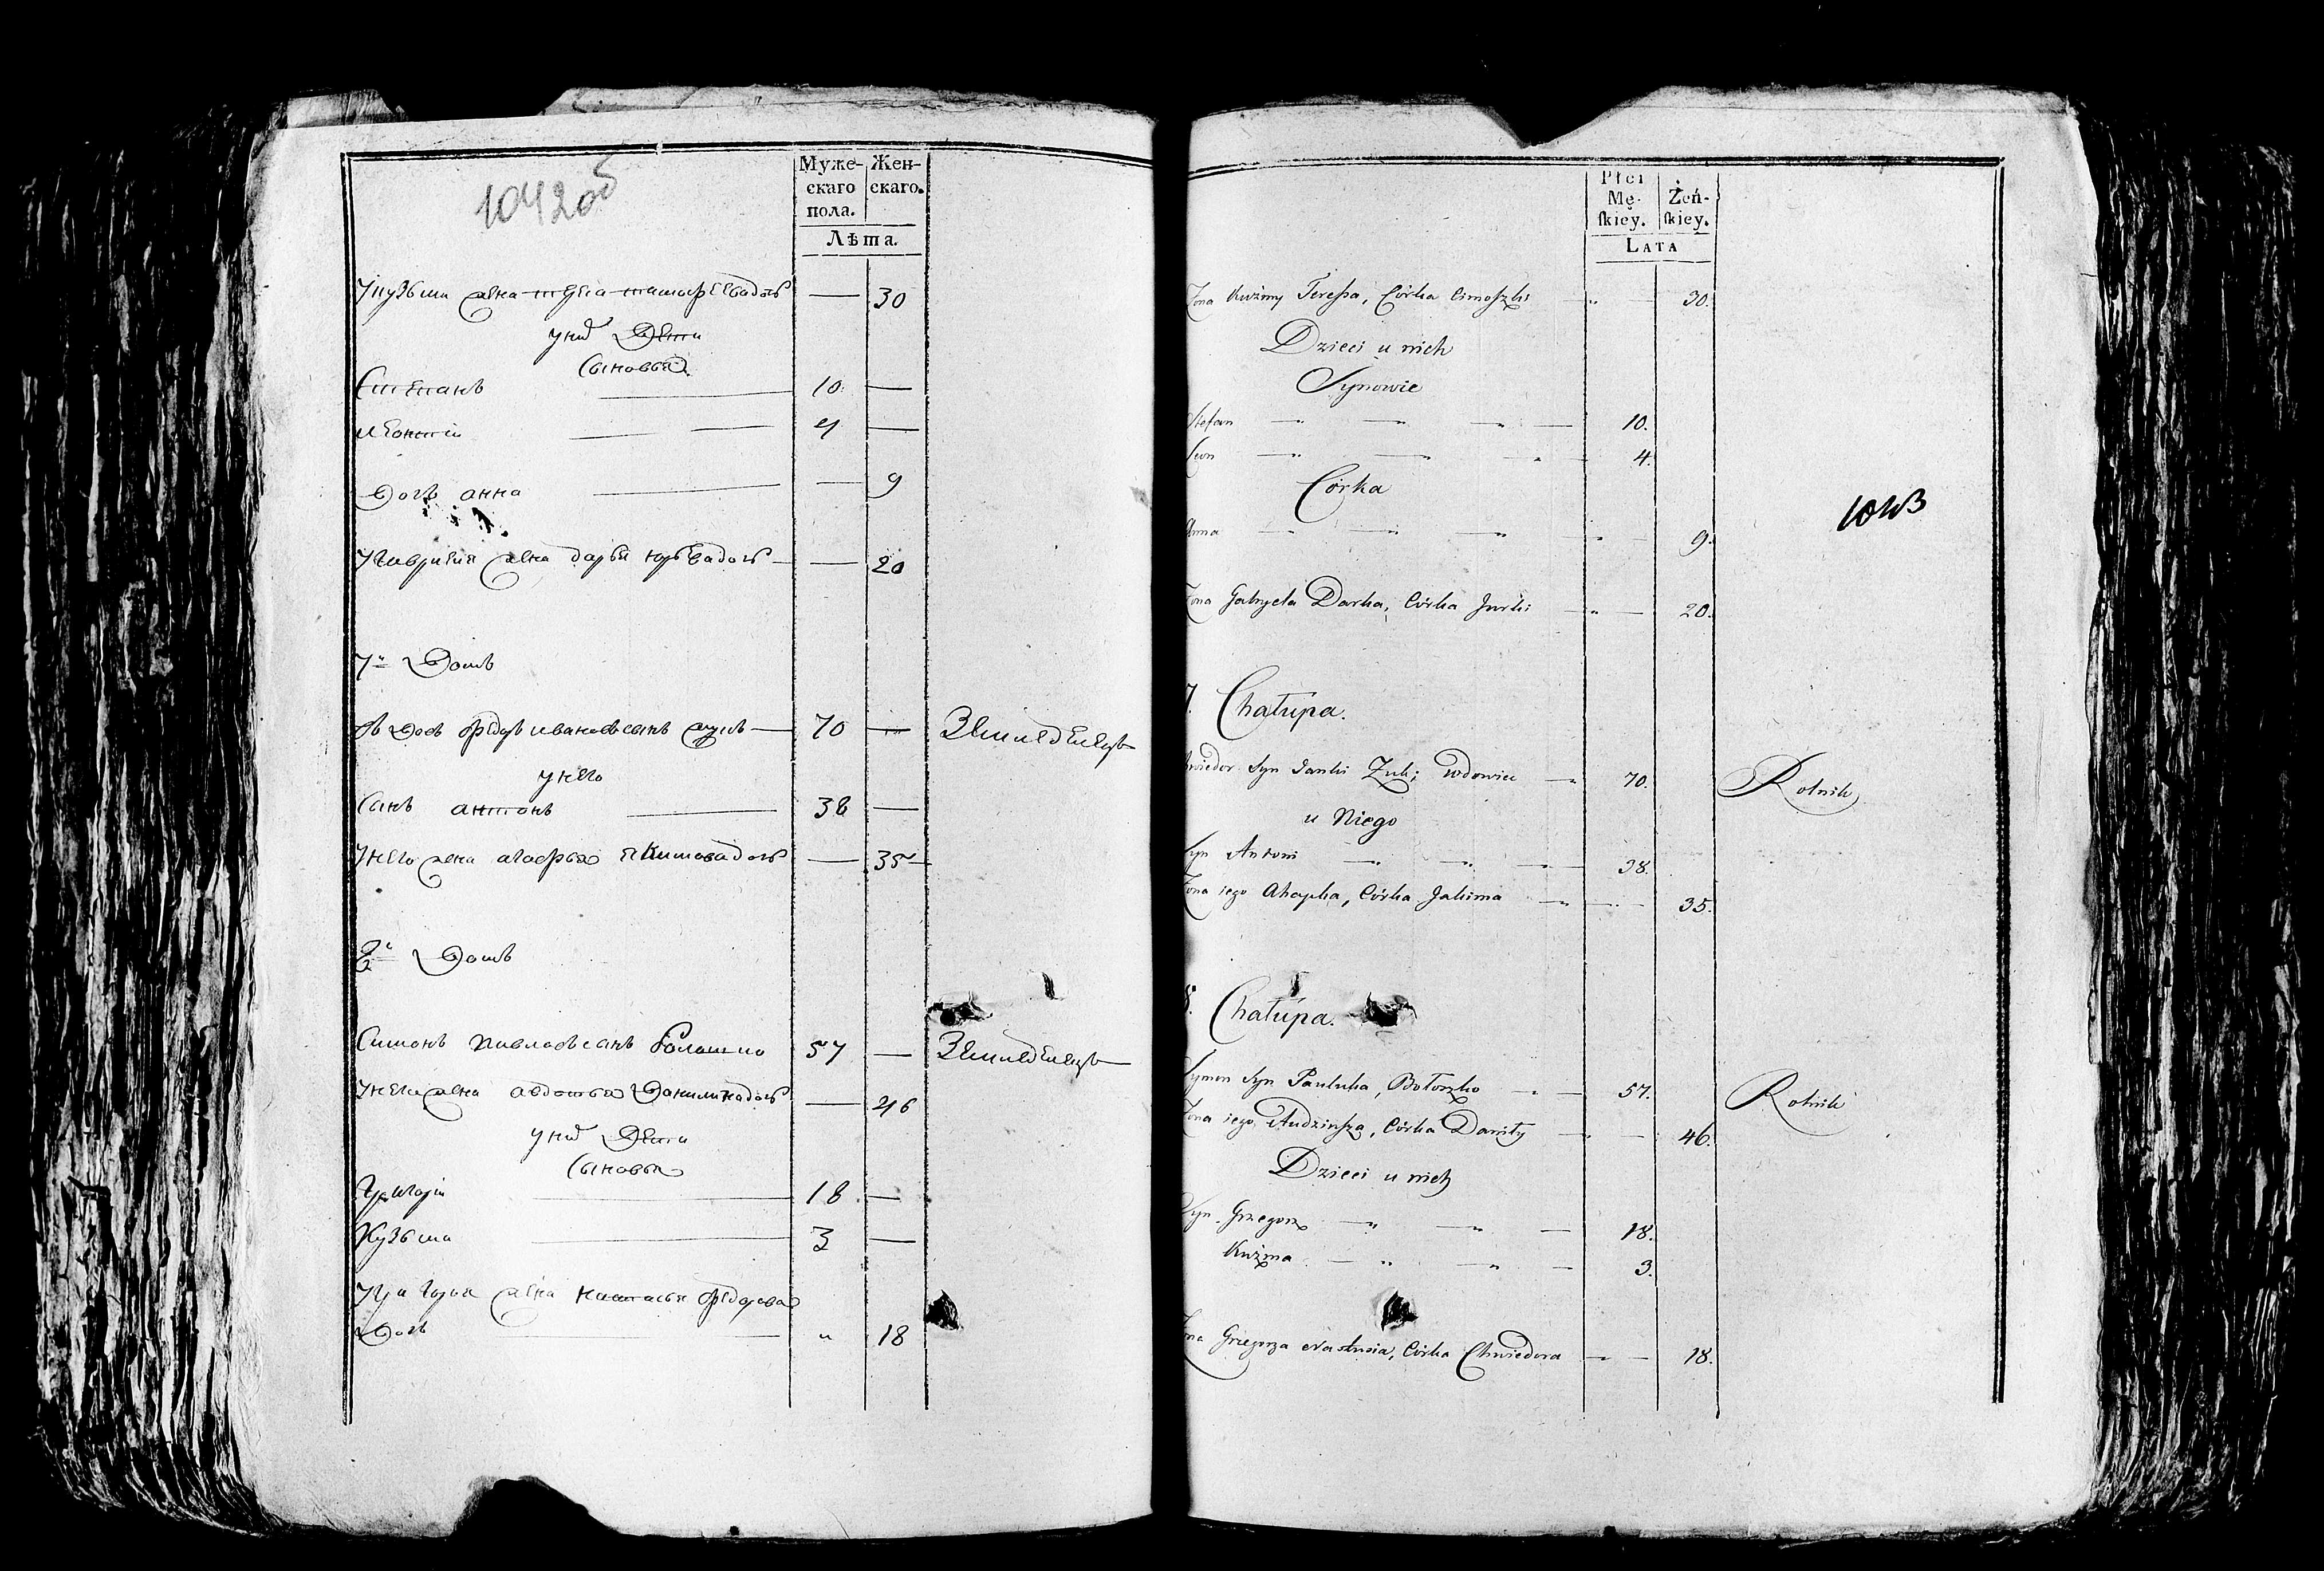 1042об
Муже-
скаго
пола.
Жен-
скаго.
Лѣта.
У кузьмы жена теуса тимофеева дочь — 30
у них Дети
Сыновья
Степанъ — 10. —
Леонтiй — 4 —
Дочь анна — 9
У гаврилы жена дарья юрьева дочь — 20
7й Домъ
Вдовъ федоръ ивановъ сынъ жукъ — 70 — Земледелецъ
у него
Сынъ антонъ — 38 —
У него жена агафья якимова дочь — 35
8й Домъ
Симонъ павловъ сынъ болошко 57 — Земледелецъ
У него жена авдотья Данилина дочь — 46
у них Дети
Сыновья
Григорiй — 18 —
Кузьма — 3 —
У григорья жена наталья федорова
Дочь — " 18
Płci
Mę-
skiey.
Żeń-
skiey.
LATA
Żona Kuźmy Teressa, Córka Cimoszki — 30.
Dzieci u nich
Synowie
Stefan — 10.
Leon — 4.
Córka
1043
Anna — 9.
Żona Gabryela Darka, Córka Jurki — 20.
7. Chałupa.
Chwiedor Syn Janki Żuk; wdowiec — 70. Rolnik
u Niego
Syn Antoni — 38.
Żona iego Ahapka, Córka Jakima — 35.
8. Chałupa.
Symon Syn Pauluka, Bołoszko — 57. Rolnik
Żona iego Audzinsza, Córka Daniły — 46.
Dzieci u nich
Syn Grzegorz — 18.
Kuźma — 3.
Żona Grzegorza Nastusia, Córka Chwiedora — 18.